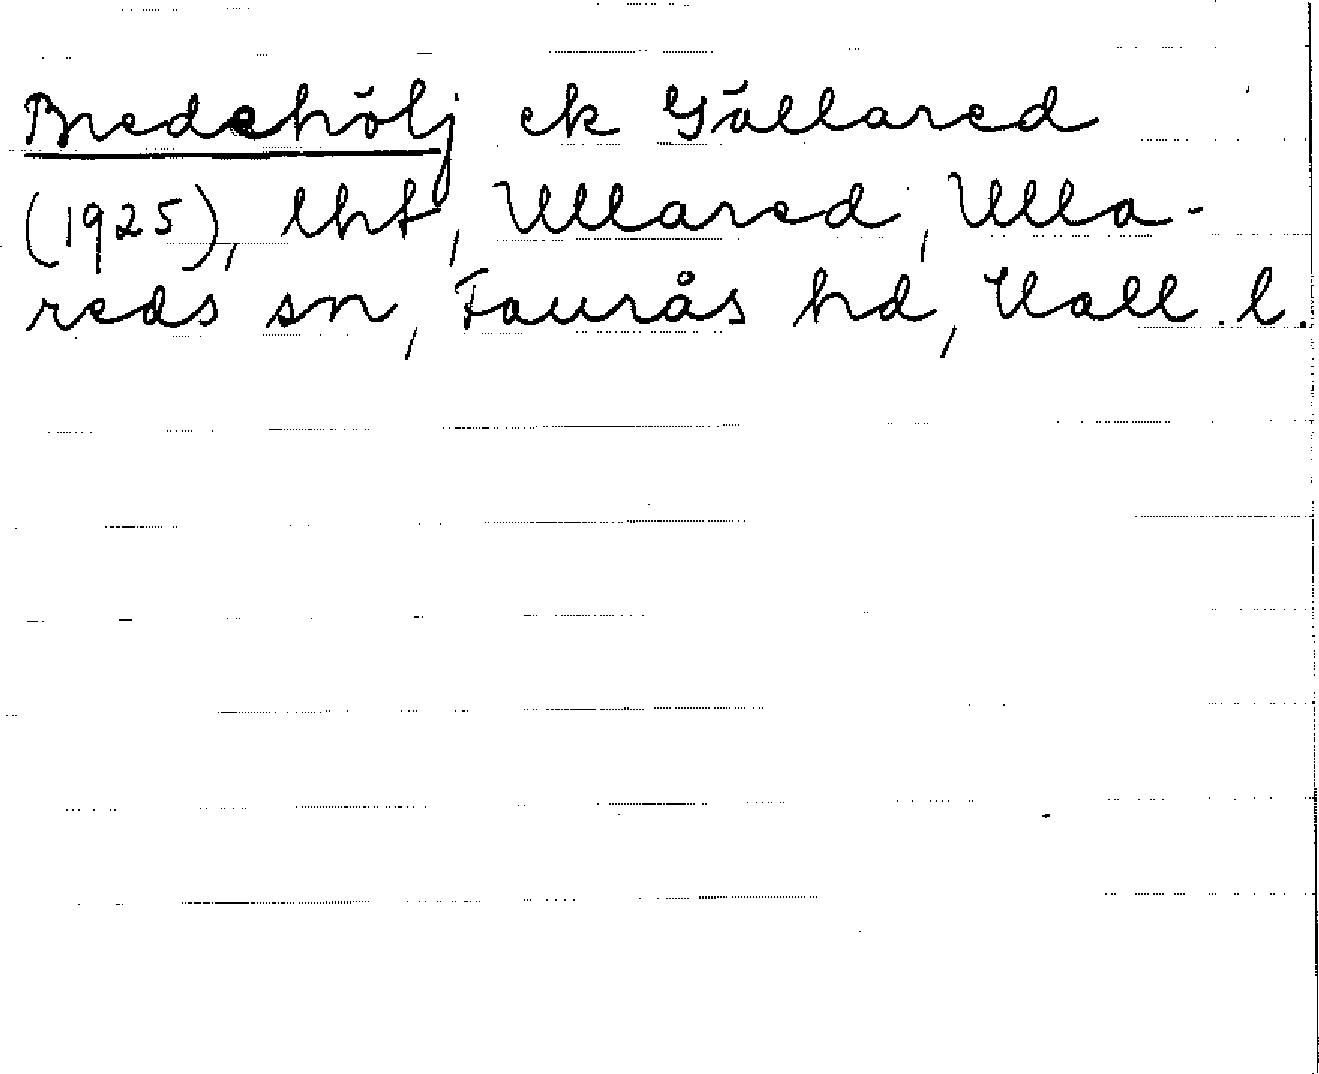 Bredehölj ek Gällared
(1925), lht, Ullared, Ulla-
reds sn, Faurås hd, Hall. l.